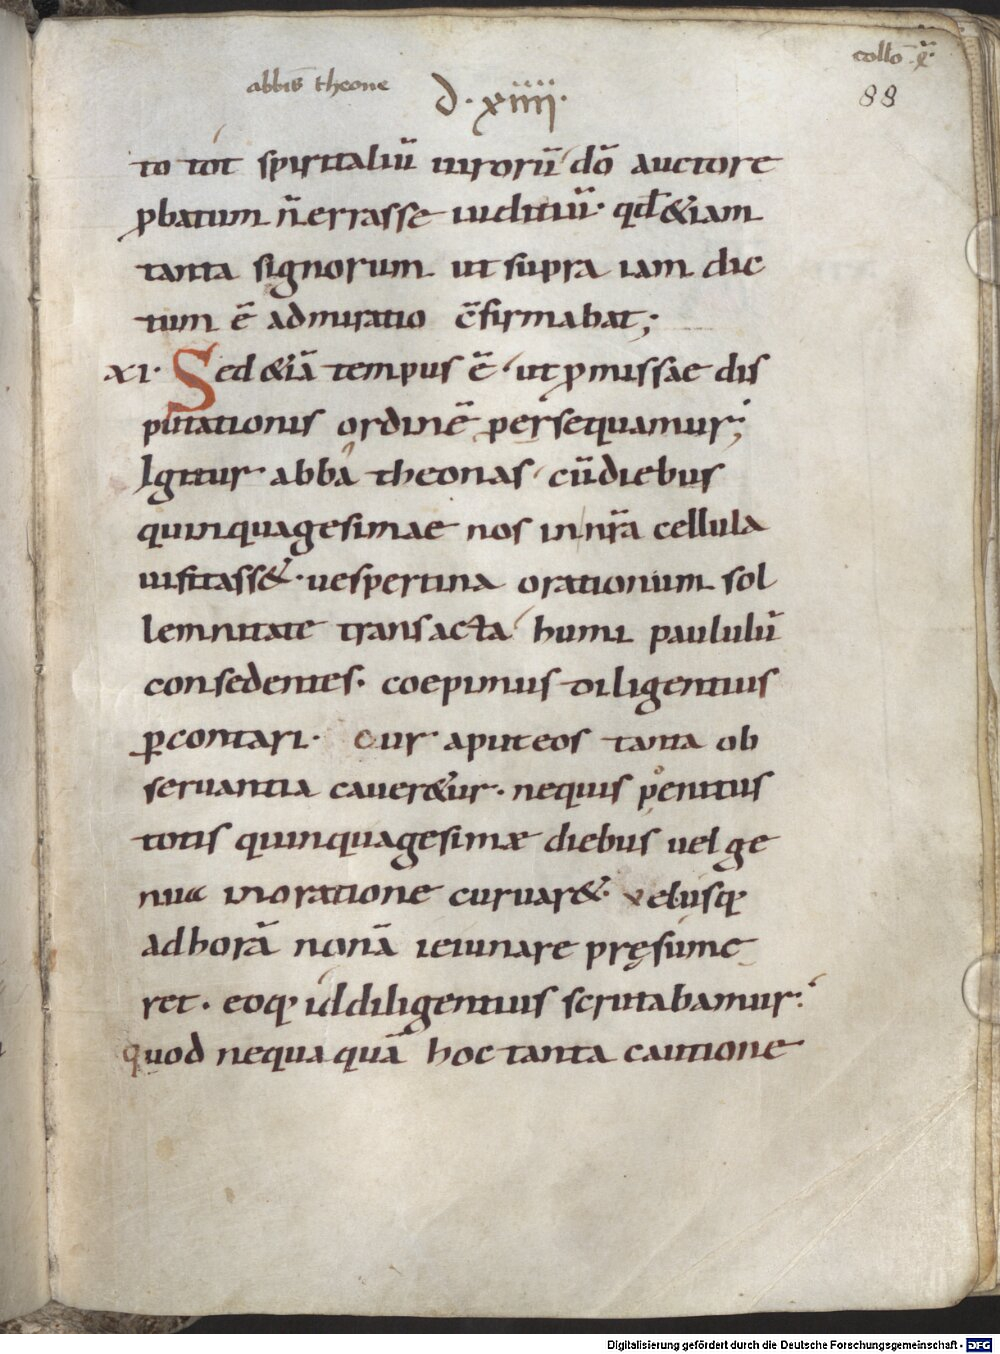 abbis̄ theone
d. xiiii.
collō x̄
88
to tót spiritaliū uirorū dō auctore
ꝓbatum n̄ errasse iuditiū. qđ &iam
tanta signorum ut supra iam dic
tum ē admiratio c̄firmabat;
XI. Sed &iā tempus ē ut ꝓmissae dis
putationis ordinē persequamur;
Igitur abba theonas cū diebus
quinquagesimae nos in nr̄a cellula
uisitass&. uespertina orationum sol
lemnitate transacta humi paululū
consedentes. coepimus diligentius
ꝑcontari. Cur aput eos tanta ob
seruantia cauer&ur. nequis penitus
totis quinquagesimæ diebus uel ge
nua in oratione curuar&. vel usq;
ad horā nonā ieiunare pręsume
ret. eoq; id diligentius scrutabamur.
quod nequaquā hoc tanta cautione
Digitalisierung gefördert durch die Deutsche Forschungsgemeinschaft - DFG